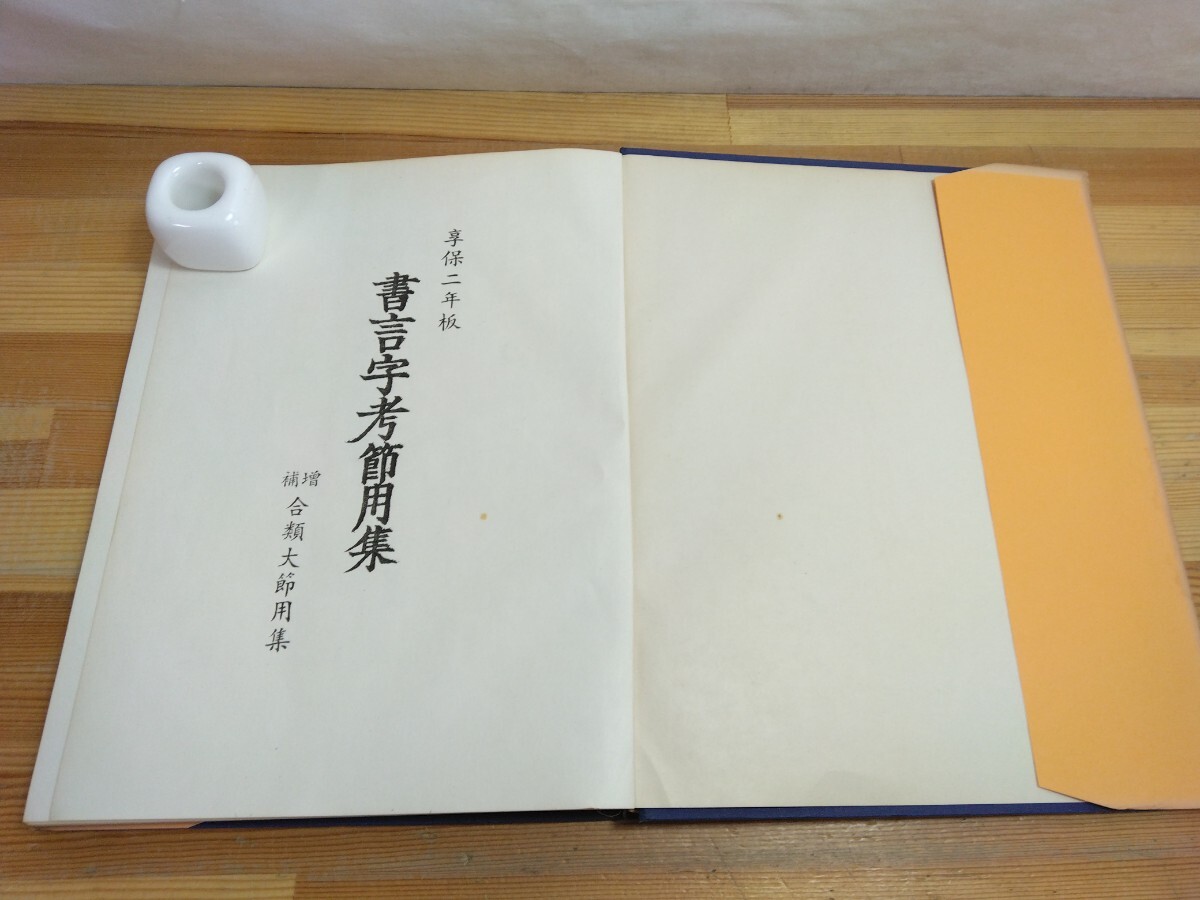 享保二年板
書言字考節用集
増補 合類大節用集